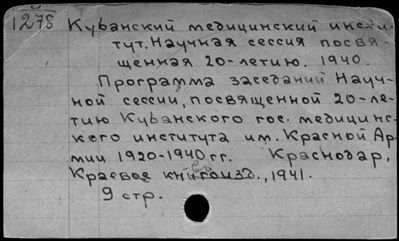 1278
Кубанский медицинский инсти-
тут. Научная сессия посвя
щенная 20-летию. 1940.
Программа заседаний Науч-
ной сессии, посвященной 20-ле-
тию Кубанского гос. медицинс-
кого института им. Красной Ар-
мии 1920-1940 гг. Краснодар,
Краевое книгоизд., 1941.
9 стр.